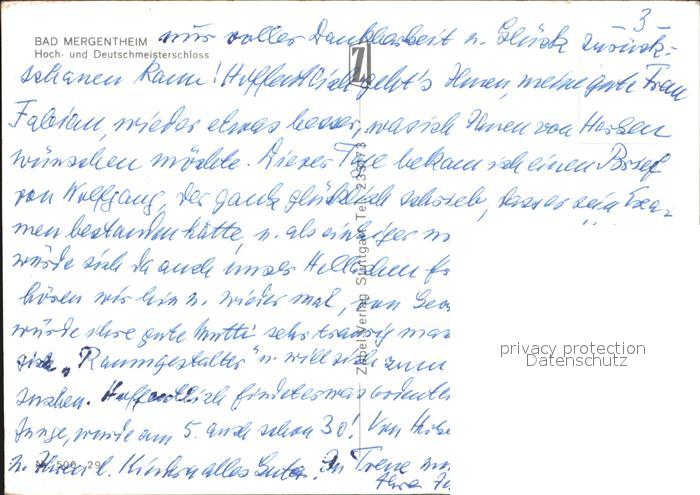 3
BAD MERGENTHEIM
Hoch- und Deutschmeisterschloss
nur voller Dankbarkeit u. Glück zurück-
schauen kann! Hoffentlich geht's Ihnen, meine gute Frau
Fabian, wieder etwas besser, was ich Ihnen von Herzen
wünschen möchte. Dieser Tage bekam ich einen Brief
von Wolfgang, der ganz glücklich schrieb, dass er sein Exa-
men bestanden hätte, u. als einziger
würde sich da auch unser
hören wir hin u. wieder mal, von
würde ihre gute Mutti sehr traurig
sich "Raumgestalter" u. will sich zum
suchen. Hoffentlich findet er was
Junge, wurde am 5. auch schon 30! Von
u. Ihren l. Kindern alles Gute. In Treue
Ihre
Ziebel-Verlag Stuttgart Tel.
privacy protection
Datenschutz